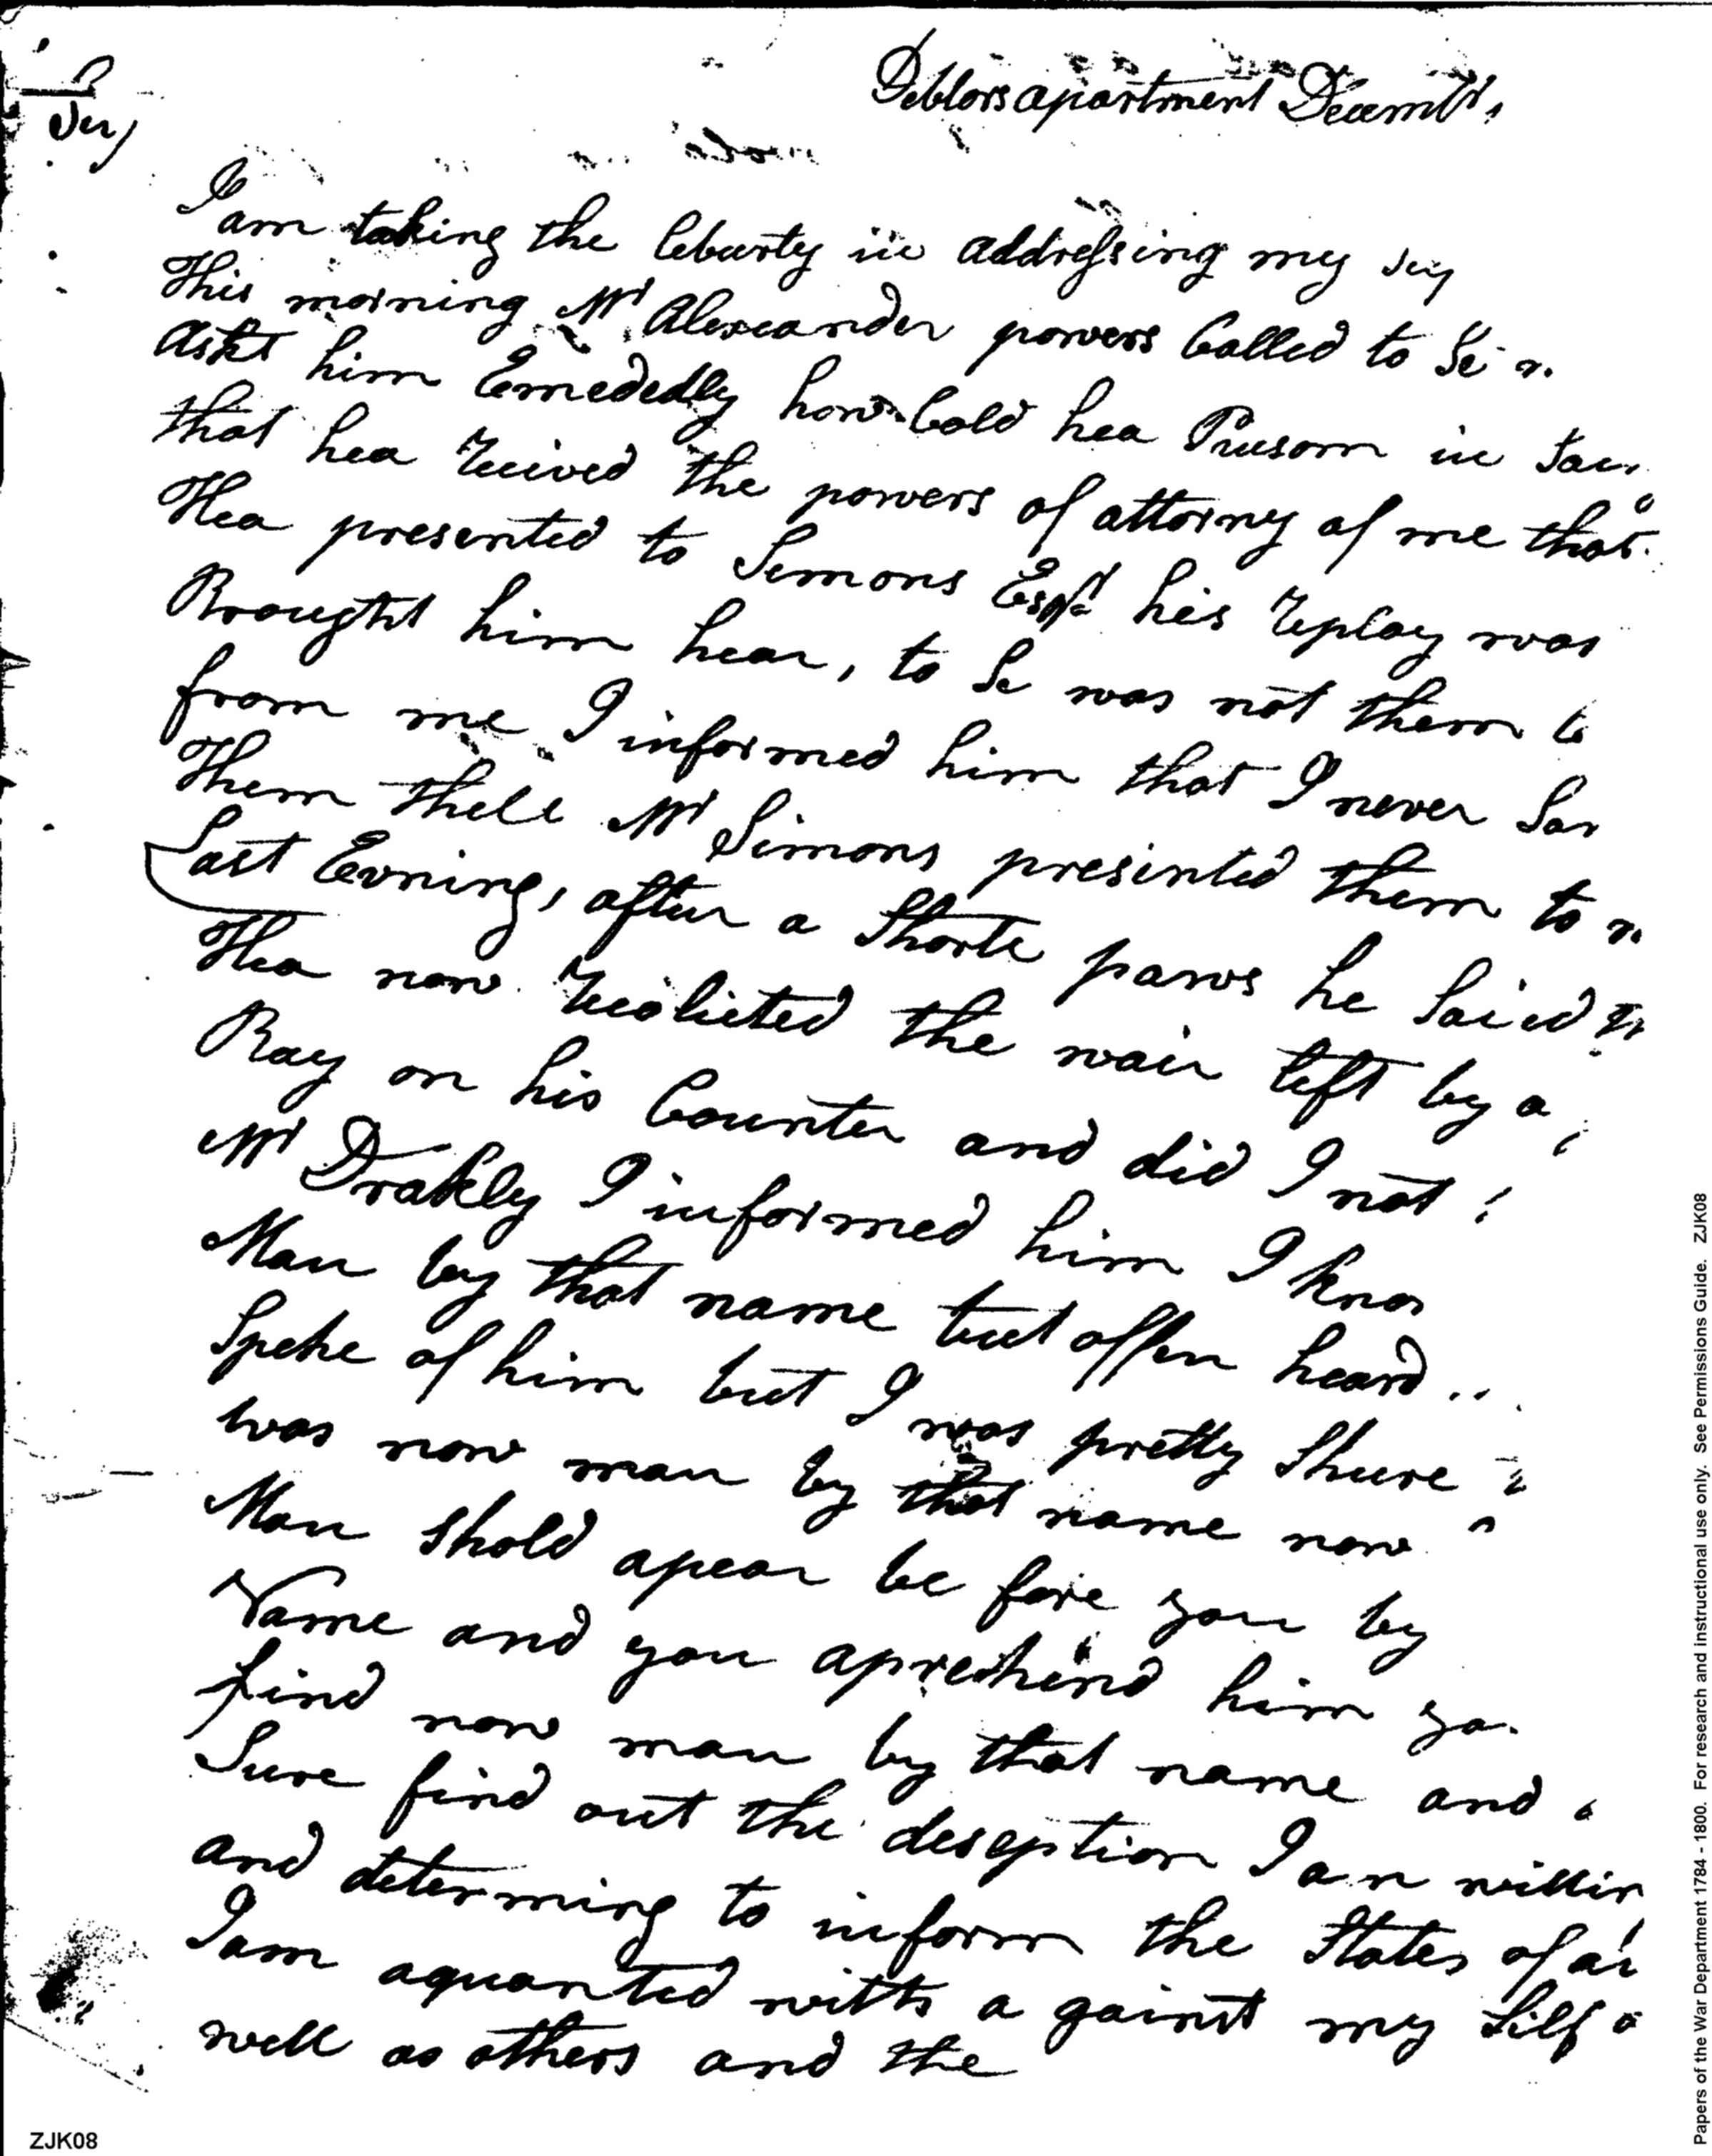 Debtors apartment Decembr.
Sir
I am taking the leburty in addressing my
This morning Mr Alexeander powers Called to Se
Askt him Emededly how Cold hea Pursom in
that hea reuived the powers of attorny of me that
Hea presented to Semons Esqr his replay was
Brought him hear, to Se was not them
from me I informed him that I never
Them thell Mr Simons presented them to
Last Evning, after a Shorte paws he Saied
Hea now recolicted the wair left by a
Ray on his Counter and did I not
Mr Drakly I informed him I know
Man by that name but offen heard
Speke of him but I was pretty Shure
was now man by that name now
Man shold apear be fore you by
Name and you aprechend him
find now man by that name and
Sure find out the desception I am willin
and determing to inform the States of
I am aquanted with a gainst my Self
well as others and the
ZJK08
Papers of the War Department 1784 - 1800. For research and instructional use only. See Permissions Guide. ZJK08